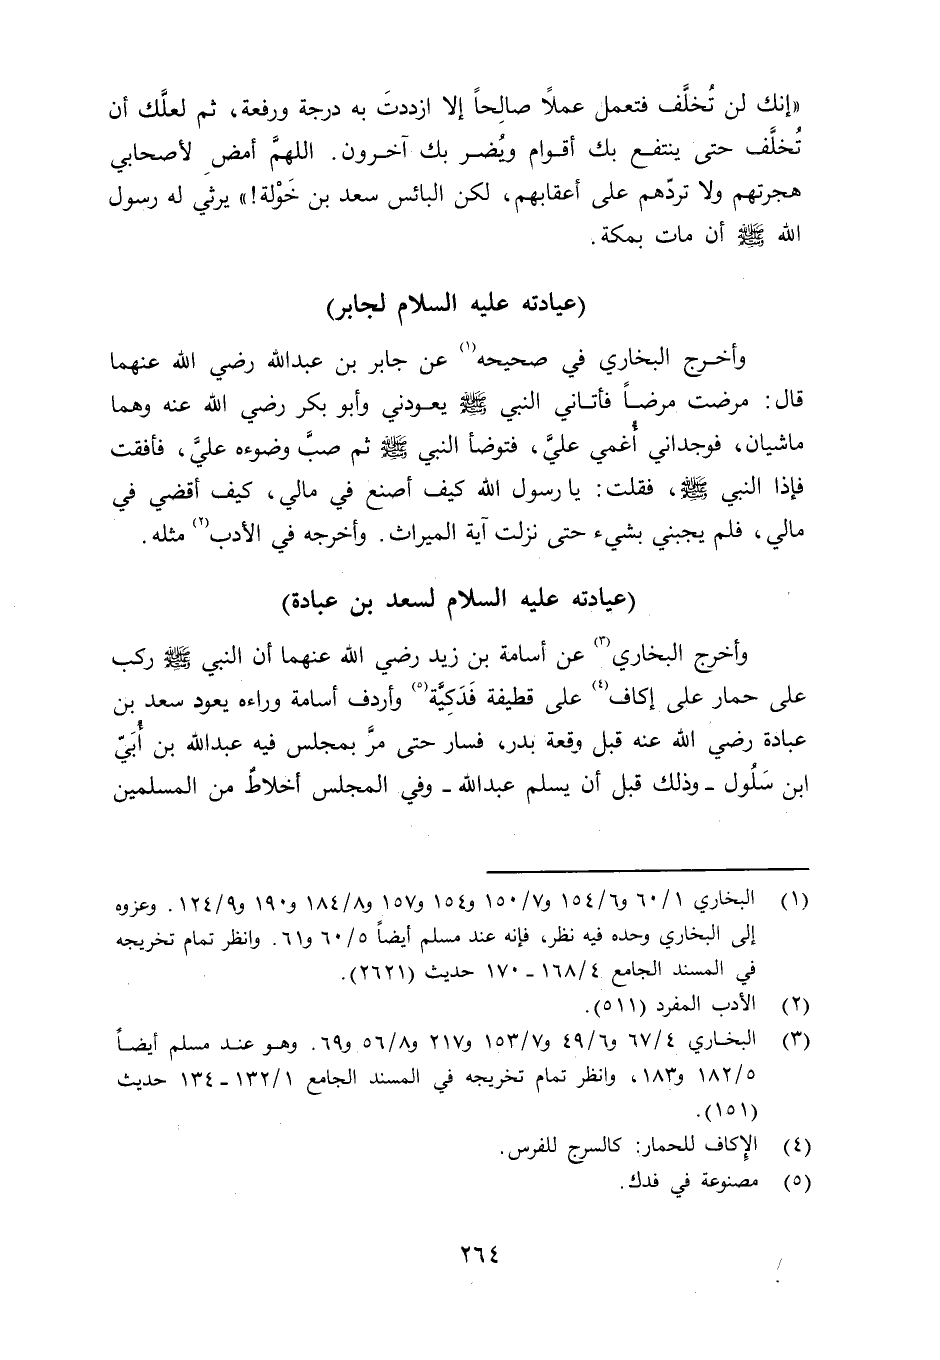 «إنك لن تُخلَّف فتعمل عملًا صالحاً إلا ازددتَ به درجة ورفعة، ثم لعلَّك أن
تُخلَّف حتى ينتفع بك أقوام ويُضر بك آخرون. اللهمَّ أمضِ لأصحابي
هجرتهم ولا تردّهم على أعقابهم، لكن البائس سعد بن خَوْلة!» يرثي له رسول
الله ﷺ أن مات بمكة.
(عيادته عليه السلام لجابر)
وأخرج البخاري في صحيحه(١) عن جابر بن عبدالله رضي الله عنهما
قال: مرضت مرضاً فأتاني النبي ﷺ يعودني وأبو بكر رضي الله عنه وهما
ماشيان، فوجداني أُغمي عليَّ، فتوضأ النبي ﷺ ثم صبَّ وضوءه عليَّ، فأفقت
فإذا النبي ﷺ، فقلت: يا رسول الله كيف أصنع في مالي، كيف أقضي في
مالي، فلم يجبني بشيء حتى نزلت آية الميراث. وأخرجه في الأدب(٢) مثله.
(عيادته عليه السلام لسعد بن عبادة)
وأخرج البخاري(٣) عن أسامة بن زيد رضي الله عنهما أن النبي ﷺ ركب
على حمار على إكاف(٤) على قطيفة فَدَكيَّة(٥) وأردف أسامة وراءه يعود سعد بن
عبادة رضي الله عنه قبل وقعة بدر، فسار حتى مرَّ بمجلس فيه عبدالله بن أُبَيّ
ابن سَلُول ـ وذلك قبل أن يسلم عبدالله ـ وفي المجلس أخلاطٌ من المسلمين
(١) البخاري ٦٠/١ و١٥٤/٦ و١٥٠/٧ و١٥٤ و١٥٧ و١٨٤/٨ و١٩٠ و١٢٤/٩. وعزوه
إلى البخاري وحده فيه نظر، فإنه عند مسلم أيضاً ٦٠/٥ و٦١. وانظر تمام تخريجه
في المسند الجامع ١٦٨/٤ ـ ١٧٠ حديث (٢٦٢١).
(٢) الأدب المفرد (٥١١).
(٣) البخاري ٦٧/٤ و٤٩/٦ و١٥٣/٧ و٢١٧ و٥٦/٨ و٦٩. وهو عند مسلم أيضاً
١٨٢/٥ و١٨٣، وانظر تمام تخريجه في المسند الجامع ١٣٢/١ ـ ١٣٤ حديث
(١٥١).
(٤) الإكاف للحمار: كالسرج للفرس.
(٥) مصنوعة في فدك.
٢٦٤